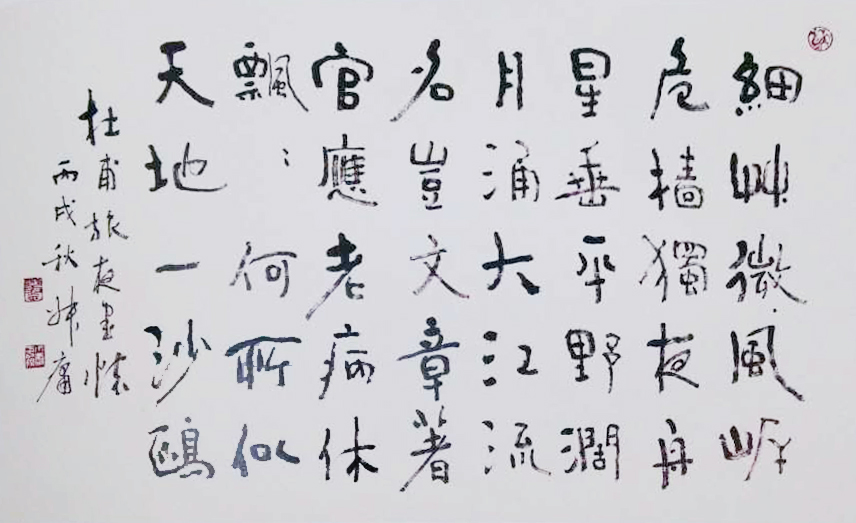 細艸微風岸
危樯獨夜舟
星垂平野濶
月涌大江流
名豈文章著
官應老病休
飄〻何所似
天地一沙鷗
杜甫旅夜書懷
丙戌秋庸